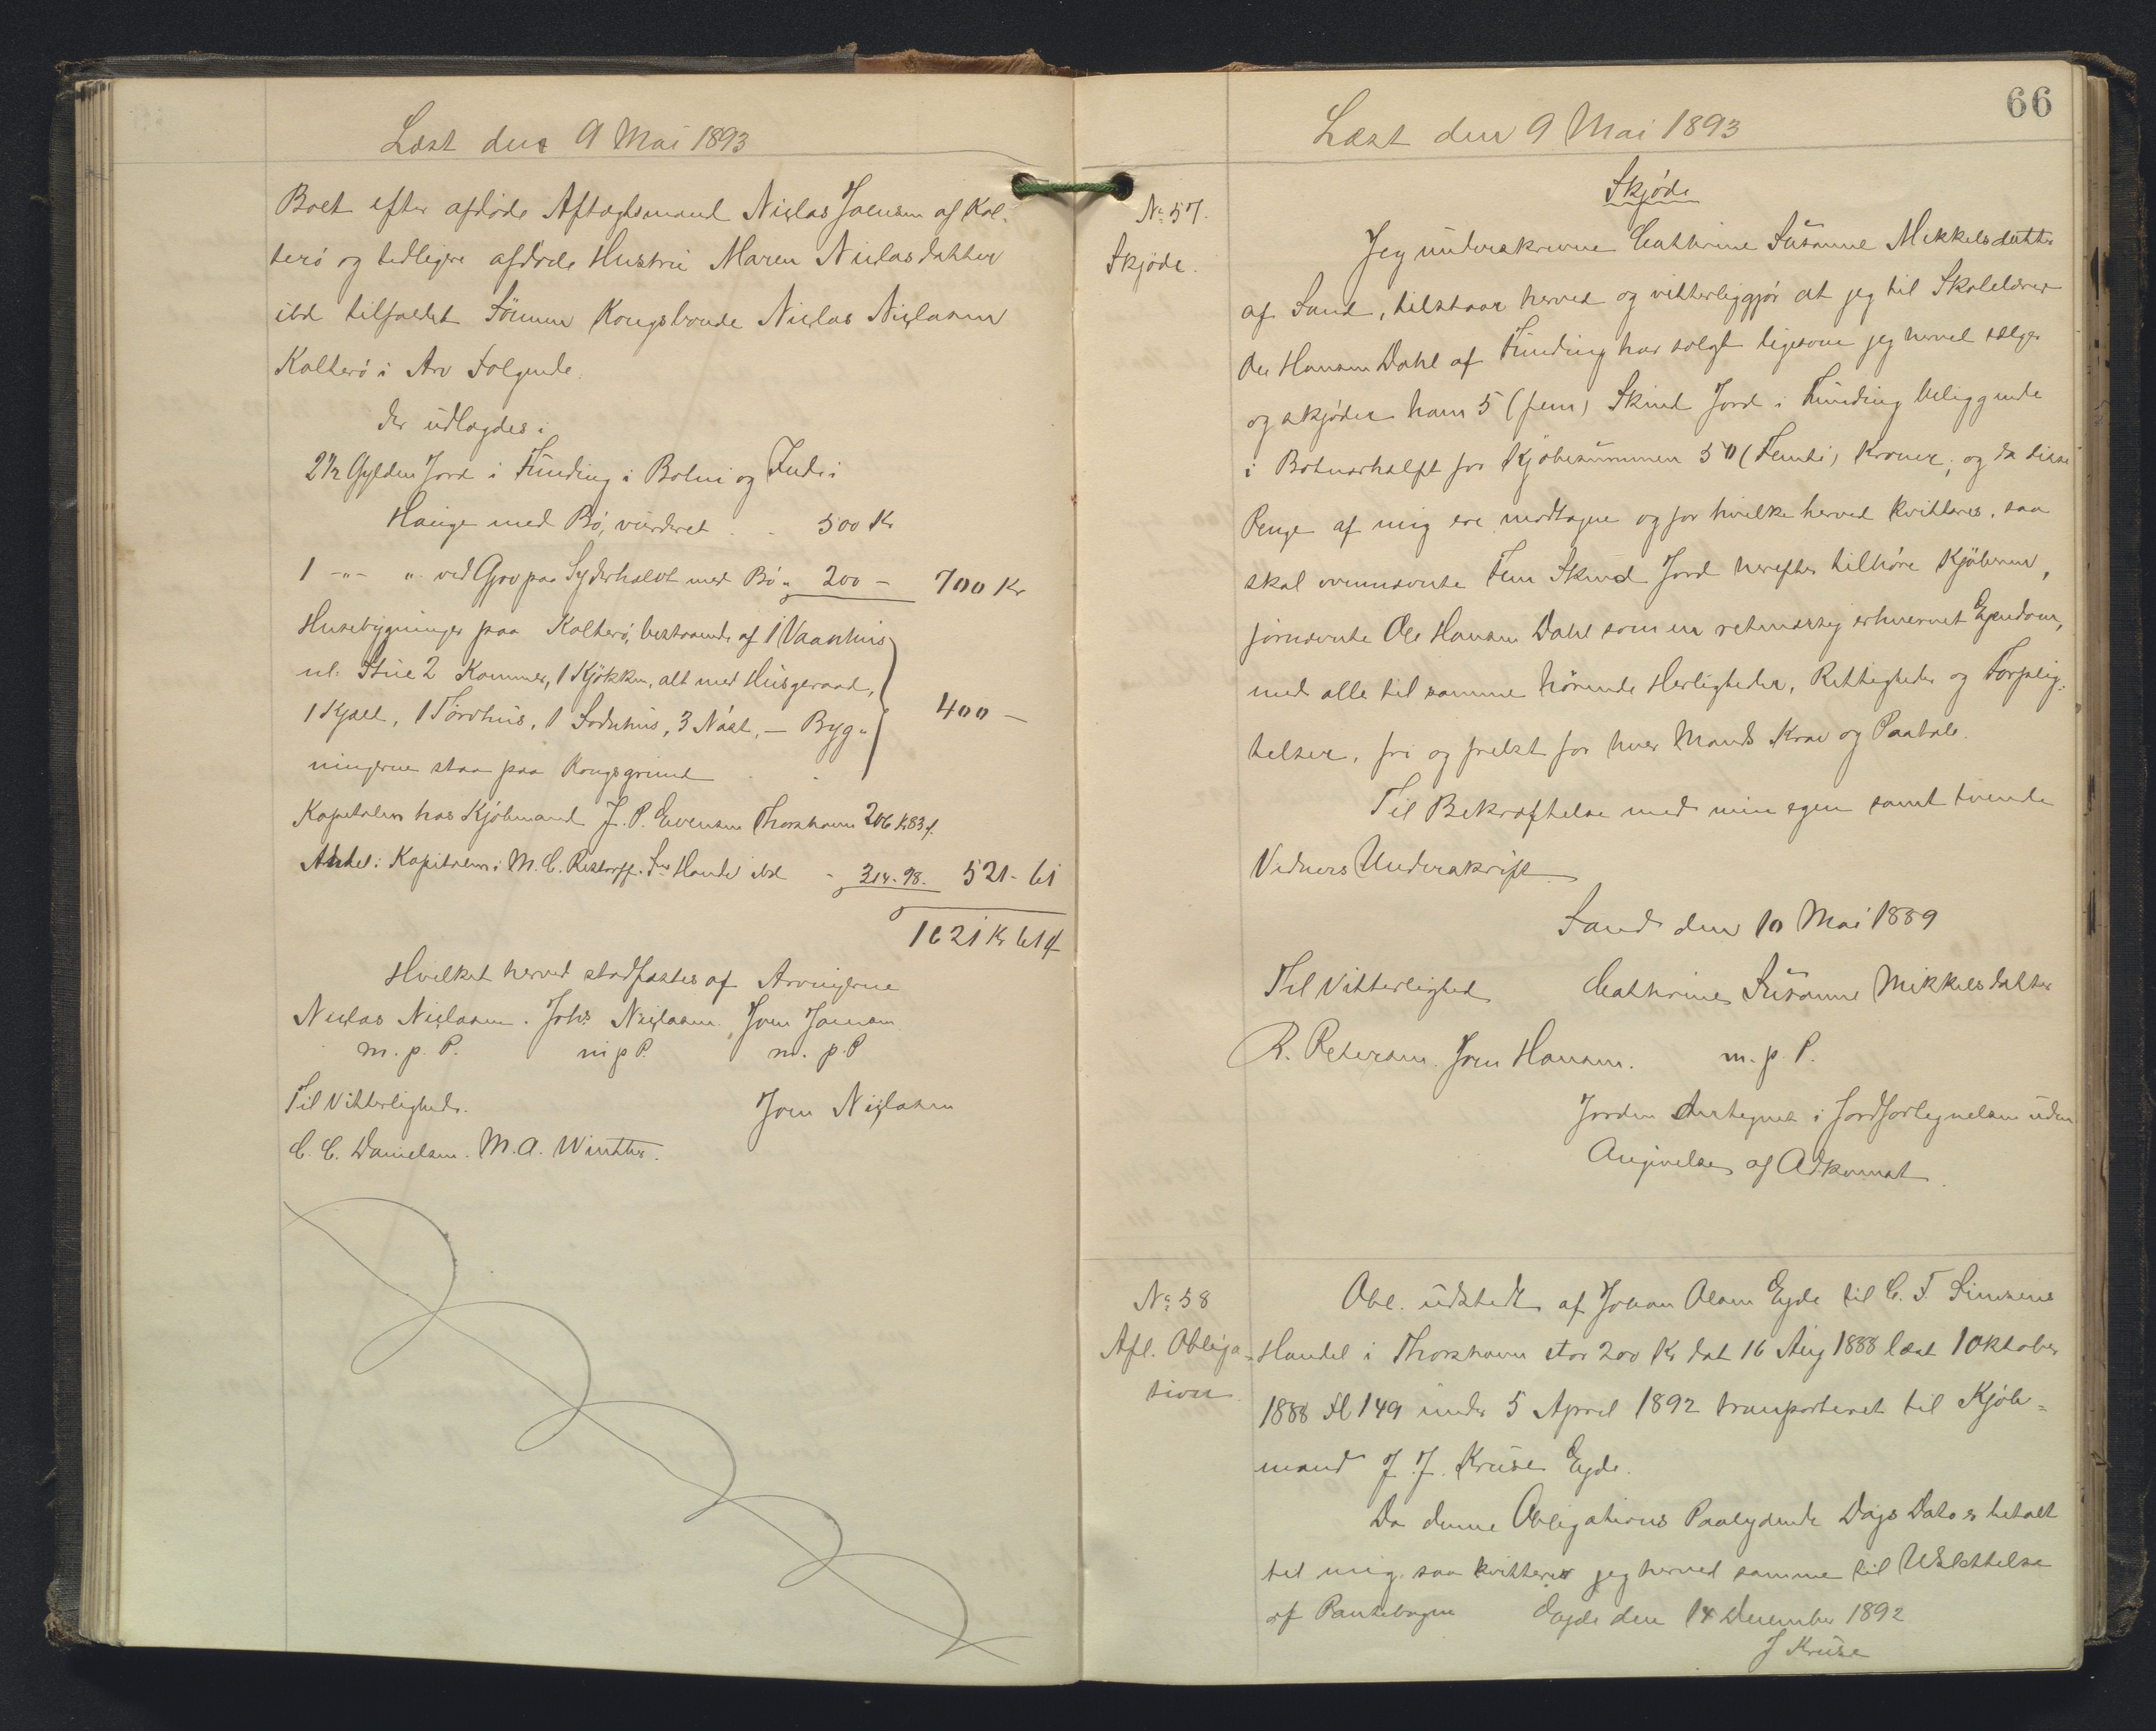 Læst den 9 Mai 1893
Boet efter afdøde Aftægtsmand Niclas Joensen af Kol-
terø og tidligere afdøde Hustru Maren Niclasdatter
ibd tilfaldt Sönnen Kongsbonde Niclas Niclasen
Kolterø i Arv Følgende.
Der udlagdes:
2½ Gylden Jord i Funding i Botni og Inde i
Hauge med Bø, vurderet . . 500 Kr
1 -"- " ved Gjov paa Syderhalvt med Bø " 200 - 700 Kr
Husebygninger paa Kolterø, bestaaende af 1 Vaanhus
nl. Stue 2 Kammer, 1 Kjøkken, alt med Husgeraad,
1 Kjall, 1 Torvhus, 1 Sodnhus, 3 Nøst, — Byg-
ningerne staa paa Kongsgrund . . 400 —
Kapitalen hos Kjøbmand J. P. Evensen Thorshavn 206 Kr 83 f.
Andel i Kapitalen i M. C. Restorff & Sns Handel ibd - 314 - 98. 521 - 61
1621 Kr 61 f
Hvilket herved stadfæstes af Arvingerne
Niclas Niclasen. Johs Niclasen. Joen Joensen
m. p. P. m p P. m. p. P
Til Vitterlighed. Joen Niclasen
C. C. Danielsen. M. A. Winther.
66
Læst den 9 Mai 1893
Skjøde
No 57.
Skjøde.
Jeg underskrevne Cathrine Susanne Mikkelsdatter
af Sand, tilstaar herved og vitterliggjør at jeg til Skolelærer
Ole Hansen Dahl af Funding har solgt ligesom jeg herved sælger
og skjøder ham 5 (fem) Skind Jord i Funding beliggende
i Botnarhalft for Kjøbesummen 50 (Femti) Kroner, og da disse
Penge af mig ere modtagne og for hvilke herved kvitteres, saa
skal ovennævnte Fem Skind Jord herefter tilhøre Kjøberen,
førnævnte Ole Hansen Dahl som en retmæssig erhvervet Ejendom,
med alle til samme hørende Herligheder, Rettigheder og Forplig-
telser, fri og frelst for hver Mands Krav og Paatale.
Til Bekræftelse med min egen samt tvende
Vidners Underskrift.
Sand den 10 Mai 1889
Til Vitterlighed Cathrine Susanne Mikkelsdatter
R. Petersen. Joen Hansen. m. p. P.
Jorden antegnet i Jordfortegnelsen uden
Angivelse af Adkomst.
No 58
Afl. Obliga-
tion.
Obl. udstedt af Johan Olesen Ejde til C. F. Simsens
Handel i Thorshavn stor 200 Kr dat 16 Aug 1888 læst 1 Oktober
1888 Fl 149 under 5 April 1892 transporteret til Kjøb-
mand J. J. Kruse Ejde.
Da denne Obligations Paalydende Dags Dato er betalt
til mig, saa kvitterer jeg herved samme til Udslettelse
af Pantebogen Ejde den 14 December 1892
J Kruse